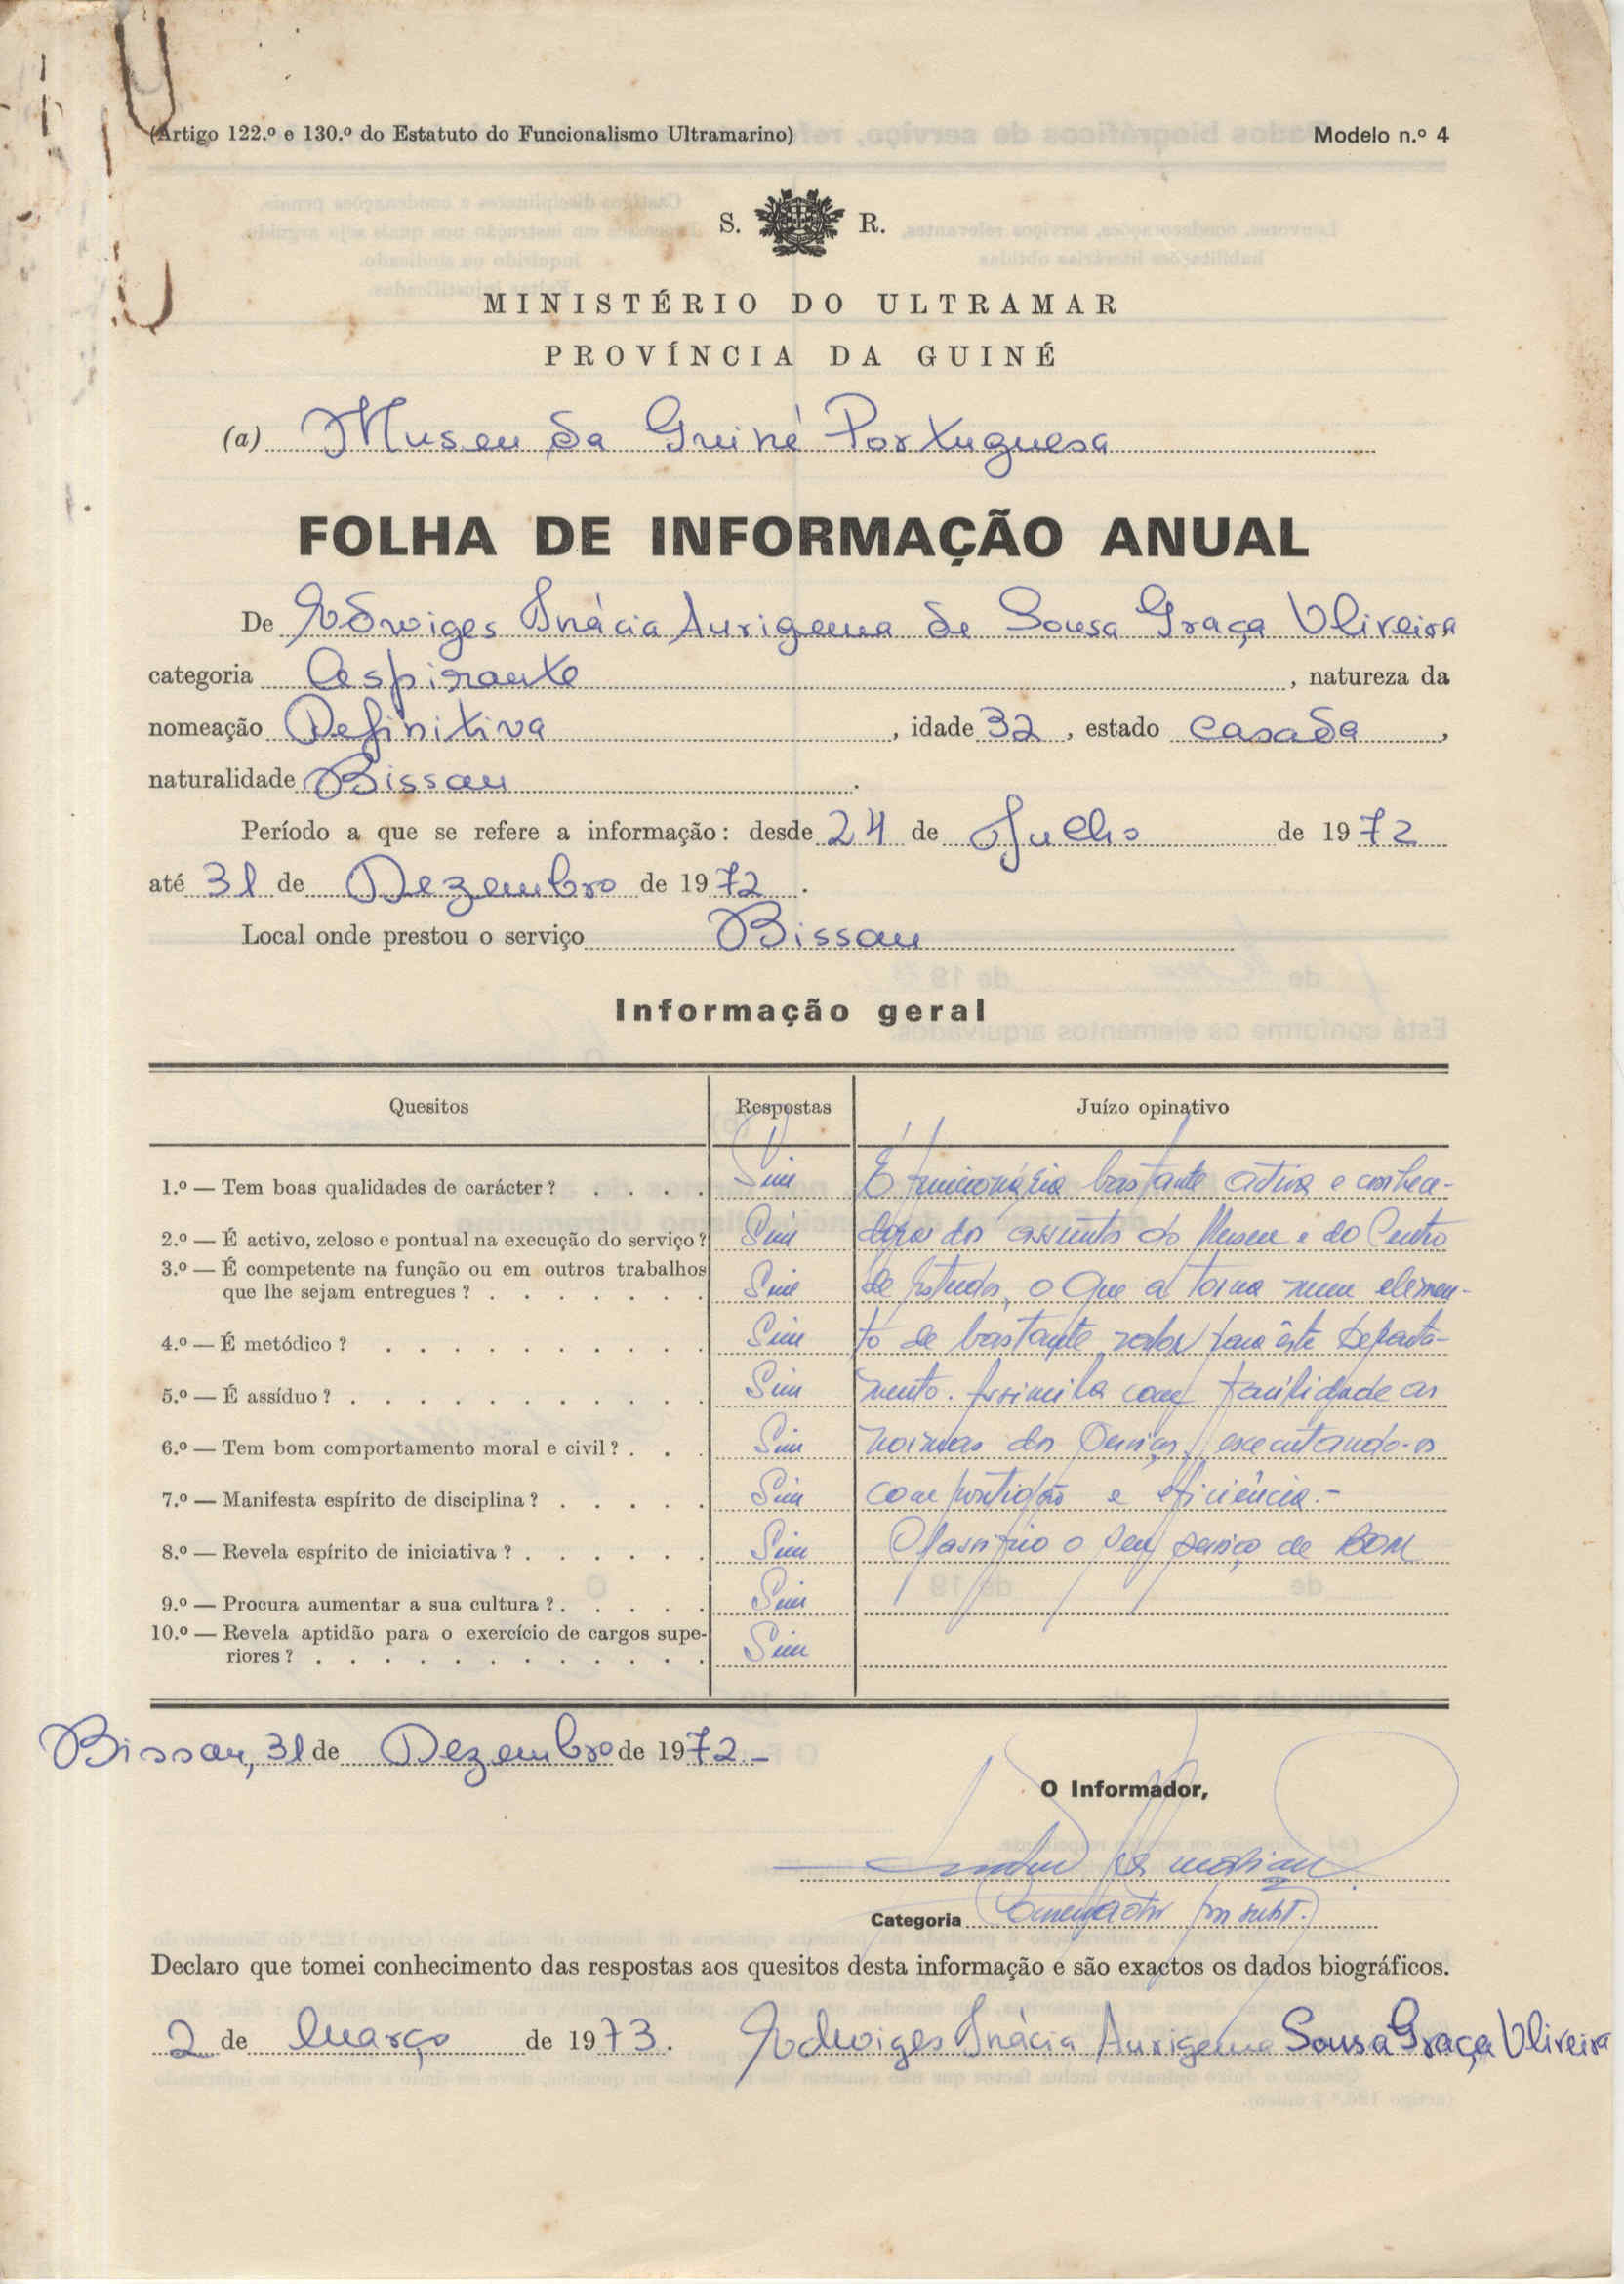 (Artigo 122.º e 130.º do Estatuto do Funcionalismo Ultramarino) Modelo n.º 4
S. R.
MINISTÉRIO DO ULTRAMAR
PROVÍNCIA DA GUINÉ
(a) Museu da Guiné Portuguesa
FOLHA DE INFORMAÇÃO ANUAL
De Edwiges Inácia Aurigema de Sousa Graça Oliveira
categoria Aspirante, natureza da
nomeação Definitiva, idade 32, estado casada,
naturalidade Bissau.
Período a que se refere a informação: desde 24 de Julho de 1972
até 31 de Dezembro de 1972.
Local onde prestou o serviço Bissau
Informação geral
Quesitos Respostas Juízo opinativo
1.º — Tem boas qualidades de carácter? Sim É funcionária bastante activa e conhece-
2.º — É activo, zeloso e pontual na execução do serviço? Sim dora dos assuntos do Museu e do Centro
3.º — É competente na função ou em outros trabalhos
que lhe sejam entregues? Sim de Estudos, o que a torna num elemen-
4.º — É metódico? Sim to de bastante valor para êste Departa-
5.º — É assíduo? Sim mento. Assimila com facilidade as
6.º — Tem bom comportamento moral e civil? Sim normas dos Serviços, executando-os
7.º — Manifesta espírito de disciplina? Sim com prontidão e eficiência.-
8.º — Revela espírito de iniciativa? Sim Classifico o seu serviço de BOM
9.º — Procura aumentar a sua cultura? Sim
10.º — Revela aptidão para o exercício de cargos supe-
riores? Sim
Bissau, 31 de Dezembro de 1972-
O Informador,
Categoria Conservador
Declaro que tomei conhecimento das respostas aos quesitos desta informação e são exactos os dados biográficos.
2 de Março de 1973. Edwiges Inácia Aurigema Sousa Graça Oliveira